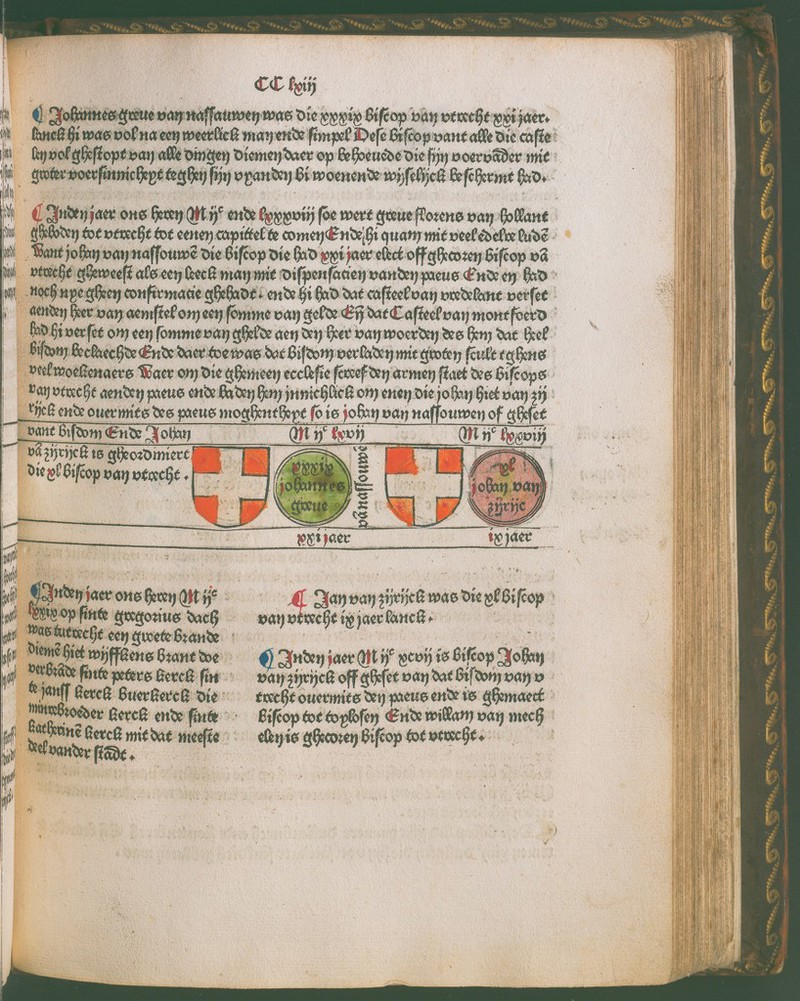 CC lxiij
Johannes greue van nassauwen was die xxxix biscop van vtrecht xxi jaer.
lanck hi was vol na een weerlick man ende simpel Dese biscop vant alle die caste
len vol ghestopt van alle dingen diemen daer op behoeuēde die sijn voervāder mit
groter voersinnicheyt teghen sijn vyanden bi woenende wijselijck beschermt had.
Inden jaer ons heren M ijᶜ ende lxxxviij soe wert greue florens van hollant
gheboden tot vtrecht tot eenen capittel te comen Ende hi quam mit veel edelre ludē
Want johan van nassouwē die biscop die had xxi jaer elect off ghecoren biscop vā
vtrecht gheweest als een leeck man mit dispensacien vanden paeus Ende en had
noch nye gheen confirmacie ghehadt. ende hi had dat casteel van vredelant verset
aenden heer van aemstel om een somme van gelde Eñ dat Casteel van montfoerd
had hi verset om een somme van ghelde aen den heer van woerden des hem dat heel
bisdom beclaechde Ende daer toe was dat bisdom verladen mit groten scult tghens
veel woekenaers Waer om die ghemeen ecclesie screef den armen staet des biscops
van vtrecht aenden paeus ende baden hem jnnichlick om enen die johan hiet van zij
rijck ende ouermits des paeus moghentheyt so is johan van nassouwen of gheset
vant bisdom Ende Johan
vā zijrijck is gheordimiert
die xl biscop van vtrecht.
M ijᶜ lxvij
M ijᶜ lxxviij
xxxix
johannes
greue
van nassouwē
xl
johan van
zijrijc
xxi jaer
ix jaer
Inden jaer ons heren M ijᶜ
lxxix op sinte gregorius dach
was tutrecht een groete brande
diemē hiet wijffkens brant doe
verbrāde sinte peters kerck sin
te jansf kerck buerkerck die
minrebroeder kerck ende sinte
katherinē kerck mit dat meeste
deel vander stādt.
Jan van zijrijck was die xl biscop
van vtrecht ix jaer lanck.
Inden jaer M ijᶜ xcvij is biscop Johan
van zijrijck off gheset van dat bisdom van v
trecht ouermits den paeus ende is ghemaect
biscop tot toylosen Ende willam van mech
elen is ghecoren biscop tot vtrecht.